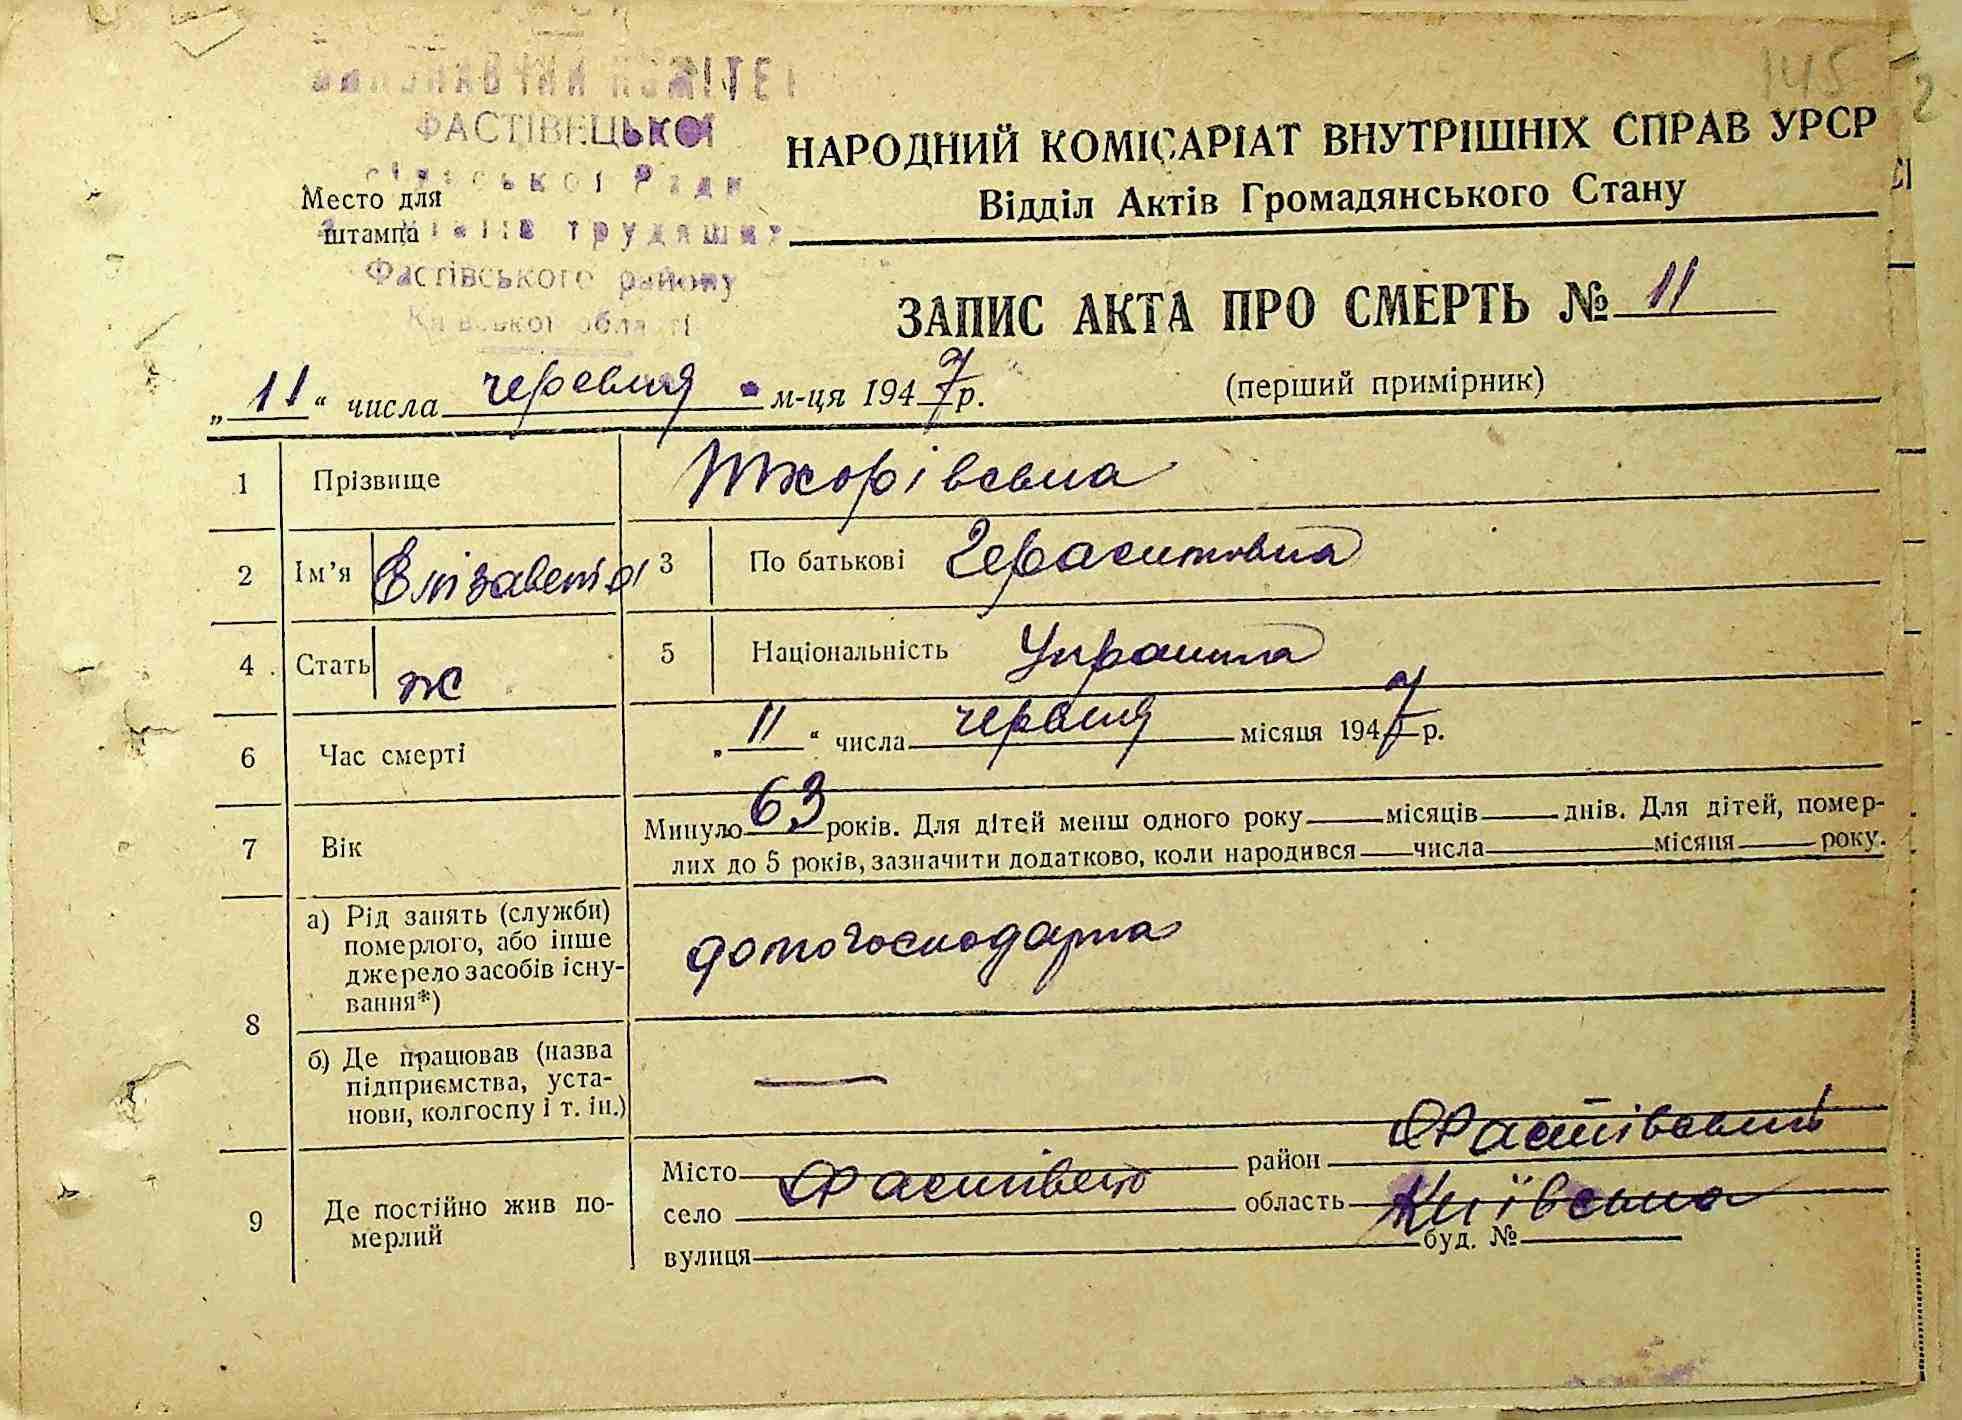 145
ВИКОНАВЧИЙ КОМІТЕТ
ФАСТІВЕЦЬКОЇ
сільської Ради
трудящих
Фастівського району
Київської області
Место для
штампа
НАРОДНИЙ КОМІСАРІАТ ВНУТРІШНІХ СПРАВ УРСР
Відділ Актів Громадянського Стану
ЗАПИС АКТА ПРО СМЕРТЬ № 11
„11“ числа червня м-ця 1947 р.
(перший примірник)
1 Прізвище Тхорівська
2 Ім’я Єлізавета 3 По батькові Герасимовна
4 Стать ж 5 Національність Українка
6 Час смерті „11“ числа червня місяця 1947 р.
7 Вік Минуло 63 років. Для дітей менш одного року місяців днів. Для дітей, помер-
лих до 5 років, зазначити додатково, коли народився числа місяця року.
8 а) Рід занять (служби)
померлого, або інше
джерело засобів існу-
вання*)
домогосподарка
б) Де працював (назва
підприємства, уста-
нови, колгоспу і т. ін.)
—
9 Де постійно жив по-
мерлий
Місто район Фастівський
село Фастівець область Київська
вулиця буд. №